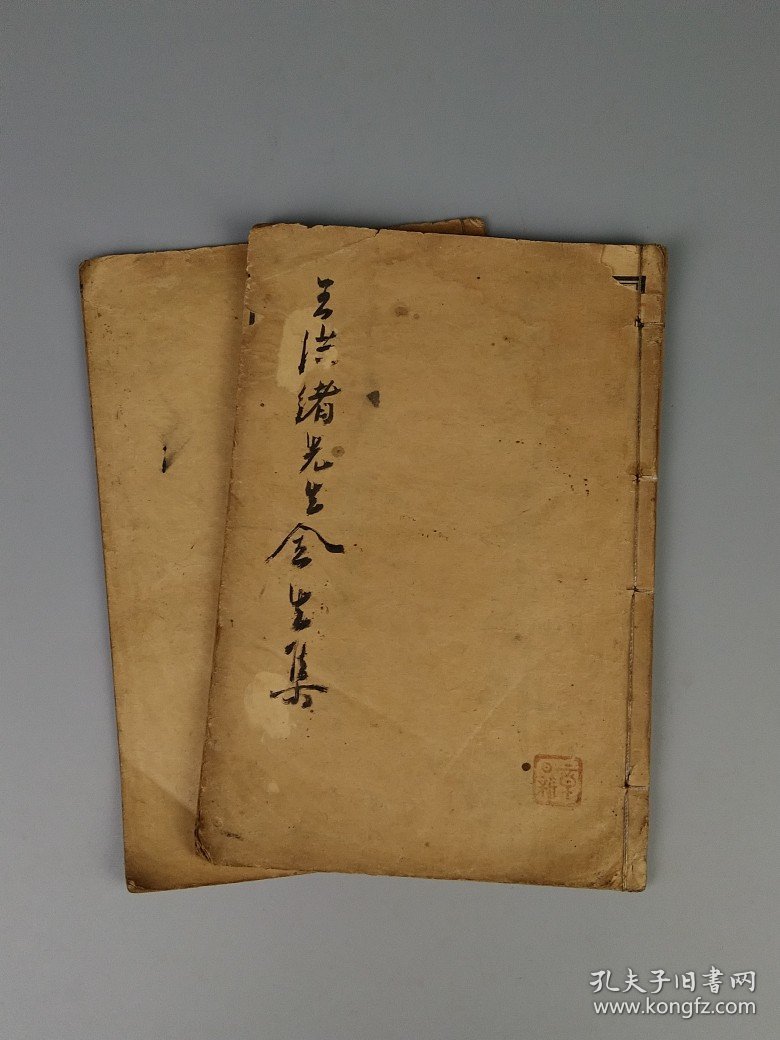 王洪绪先生全生集
孔夫子旧书网
www.kongfz.com